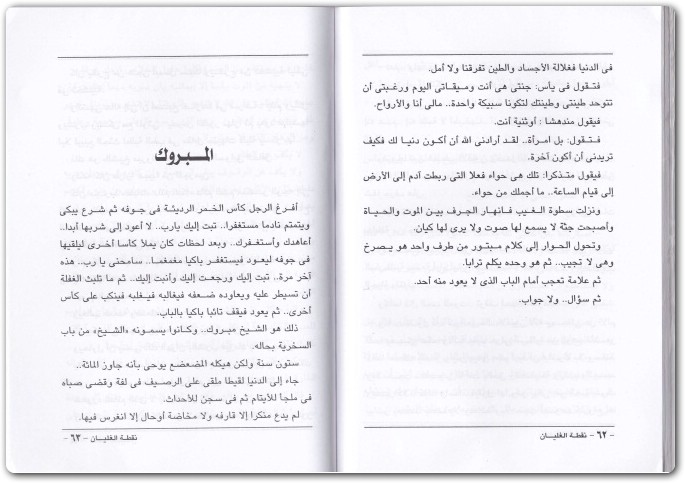 فى الدنيا فغلالة الأجساد والطين تفرقنا ولا أمل.
فتقول فى يأس: جنتى هى أنت وميقاتى اليوم ورغبتى أن
تتوحد طينتى وطينتك لتكونا سبيكة واحدة.. مالى أنا والأرواح.
فيقول مندهشا: أوثنية أنت.
فتقول: بل امرأة.. لقد أرادنى الله أن أكون دنيا لك فكيف
تريدنى أن أكون آخرة.
فيقول متذكرا: تلك هى حواء فعلا التى ربطت آدم إلى الأرض
إلى قيام الساعة.. ما أجملك من حواء.
ونزلت سطوة الغيب فانهار الجرف بين الموت والحياة
وأصبحت جثة لا يسمع لها صوت ولا يرى لها كيان.
وتحول الحوار إلى كلام مبتور من طرف واحد هو يصرخ
وهى لا تجيب.. ثم هو وحده يكلم ترابا.
ثم علامة تعجب أمام الباب الذى لا يعود منه أحد.
ثم سؤال.. ولا جواب.
- ٦٢ - نقطة الغليان
المبروك
أفرغ الرجل كأس الخمر الرديئة فى جوفه ثم شرع يبكى
ويتمتم نادما مستغفرا.. تبت إليك يارب.. لا أعود إلى شربها أبدا..
أعاهدك وأستغفرك.. وبعد لحظات كان يملأ كأسا أخرى ليلقيها
فى جوفه ليعود فيستغفر باكيا مغمغما.. سامحنى يا رب.. هذه
آخر مرة.. تبت إليك ورجعت إليك وأنبت إليك.. ثم ما تلبث الغفلة
أن تسيطر عليه ويعاوده ضعفه فيغالبه فيغلبه فينكب على كأس
أخرى.. ثم يعود فيقف تائبا باكيا بالباب.
ذلك هو الشيخ مبروك.. وكانوا يسمونه «الشيخ» من باب
السخرية بحاله.
ستون سنة ولكن هيكله المضعضع يوحى بأنه جاوز المائة..
جاء إلى الدنيا لقيطا ملقى على الرصيف فى لفة وقضى صباه
فى ملجأ للأيتام ثم فى سجن للأحداث.
لم يدع منكرا إلا قارفه ولا مخاضة أوحال إلا انغرس فيها.
نقطة الغليان - ٦٣ -